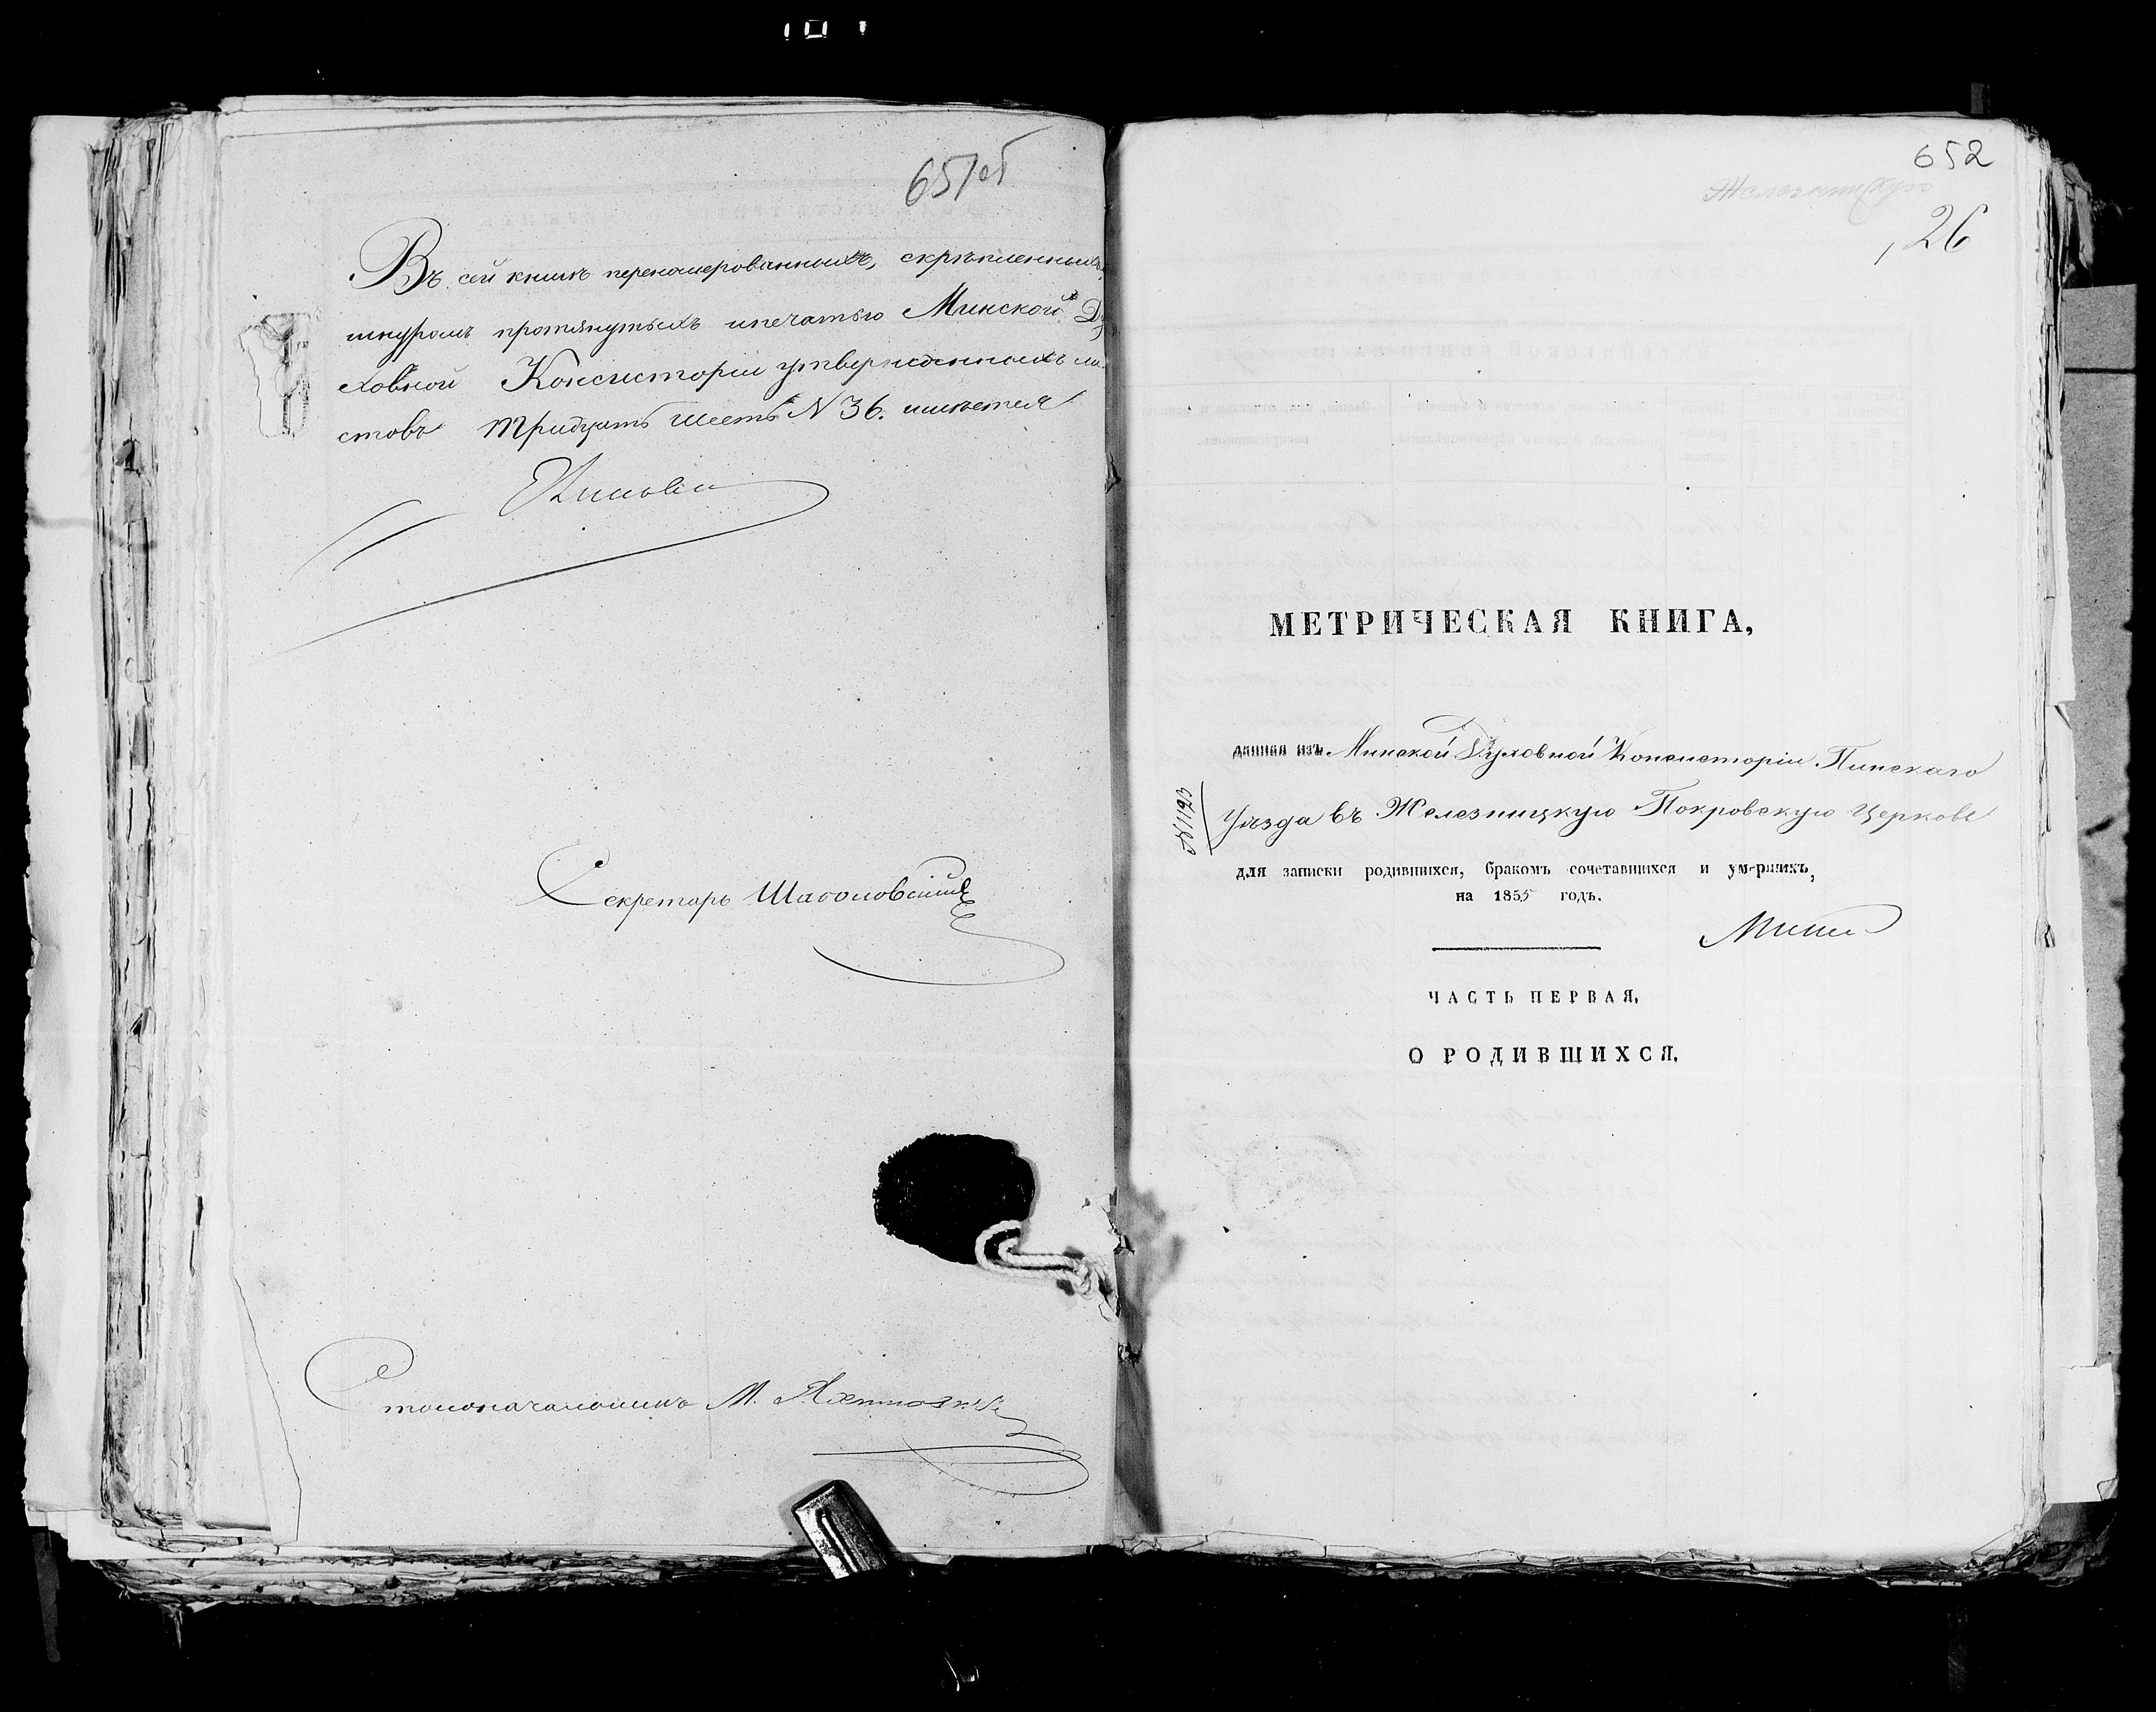 651об
Въ сей книгѣ перенумерованныхъ, скрѣпленныхъ,
шнуромъ протянутыхъ и печатью Минской Ду
ховной Консисторіи утвержденныхъ ли
стовъ тридцать шесть N 36. имѣется
Секретарь
Столоначальникъ М.
652
26
МЕТРИЧЕСКАЯ КНИГА,
данная изъ Минской Духовной Консисторіи Пинскаго
N1193
Уѣзда въ Железницкую Покровскую Церковь
для записки родившихся, бракомъ сочетавшихся и умершихъ,
на 1855 годъ.
ЧАСТЬ ПЕРВАЯ,
О РОДИВШИХСЯ.